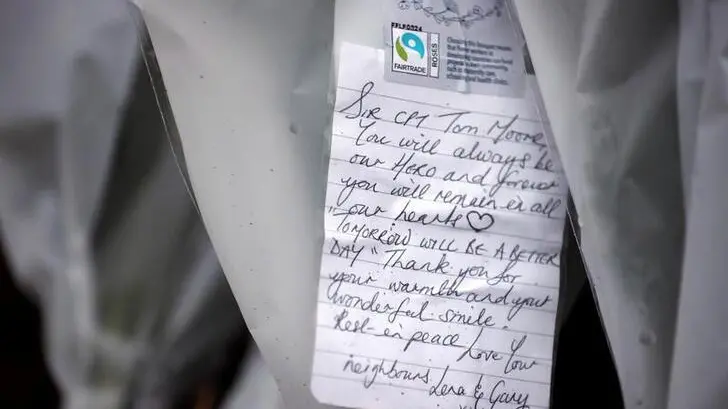 FFLF0024
FAIRTRADE
ROSES
Sir CPT Tom Moore,
You will always be
our Hero and forever
you will remain in all
our hearts ♡
"TOMORROW WILL BE A BETTER
DAY" Thank you for
your warmth and your
wonderful smile.
Rest in peace Love Your
neighbours Lena & Gary